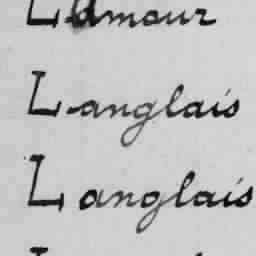 Lamour
Langlais
Langlais